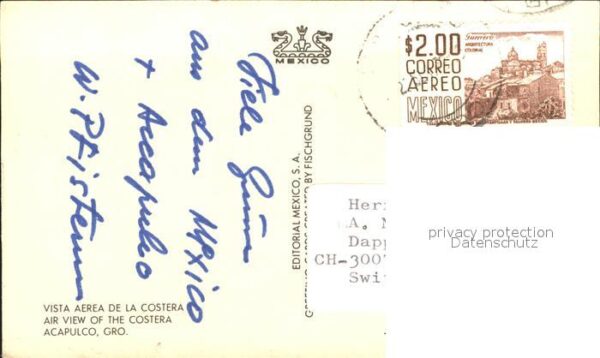 Viele Grüsse
aus dem Mexico
+ Accapulco
W. Pfisterer
VISTA AEREA DE LA COSTERA
AIR VIEW OF THE COSTERA
ACAPULCO, GRO.
MEXICO
EDITORIAL MEXICO, S. A.
BY FISCHGRUND
$2.00
CORREO
AEREO
MEXICO
Guerrero
ARQUITECTURA
COLONIAL
Herr
.A. N
Dapp
CH-3007
Swi
privacy protection
Datenschutz